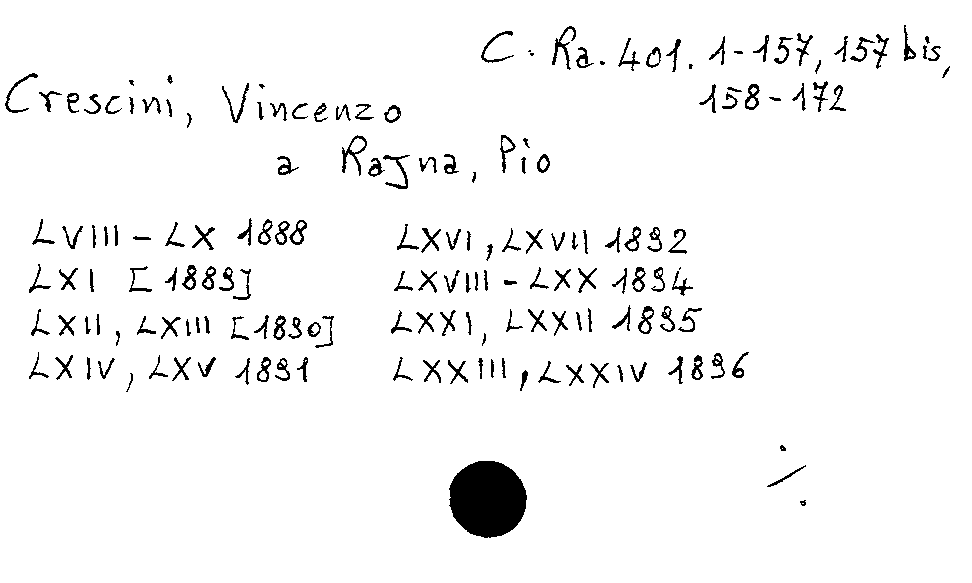 C. Ra. 401. 1-157, 157 bis,
158-172
Crescini, Vincenzo
a Rajna, Pio
LVIII - LX 1888
LXI [1889]
LXII, LXIII [1890]
LXIV, LXV 1891
LXVI, LXVII 1892
LXVIII - LXX 1894
LXXI, LXXII 1895
LXXIII, LXXIV 1896
./.